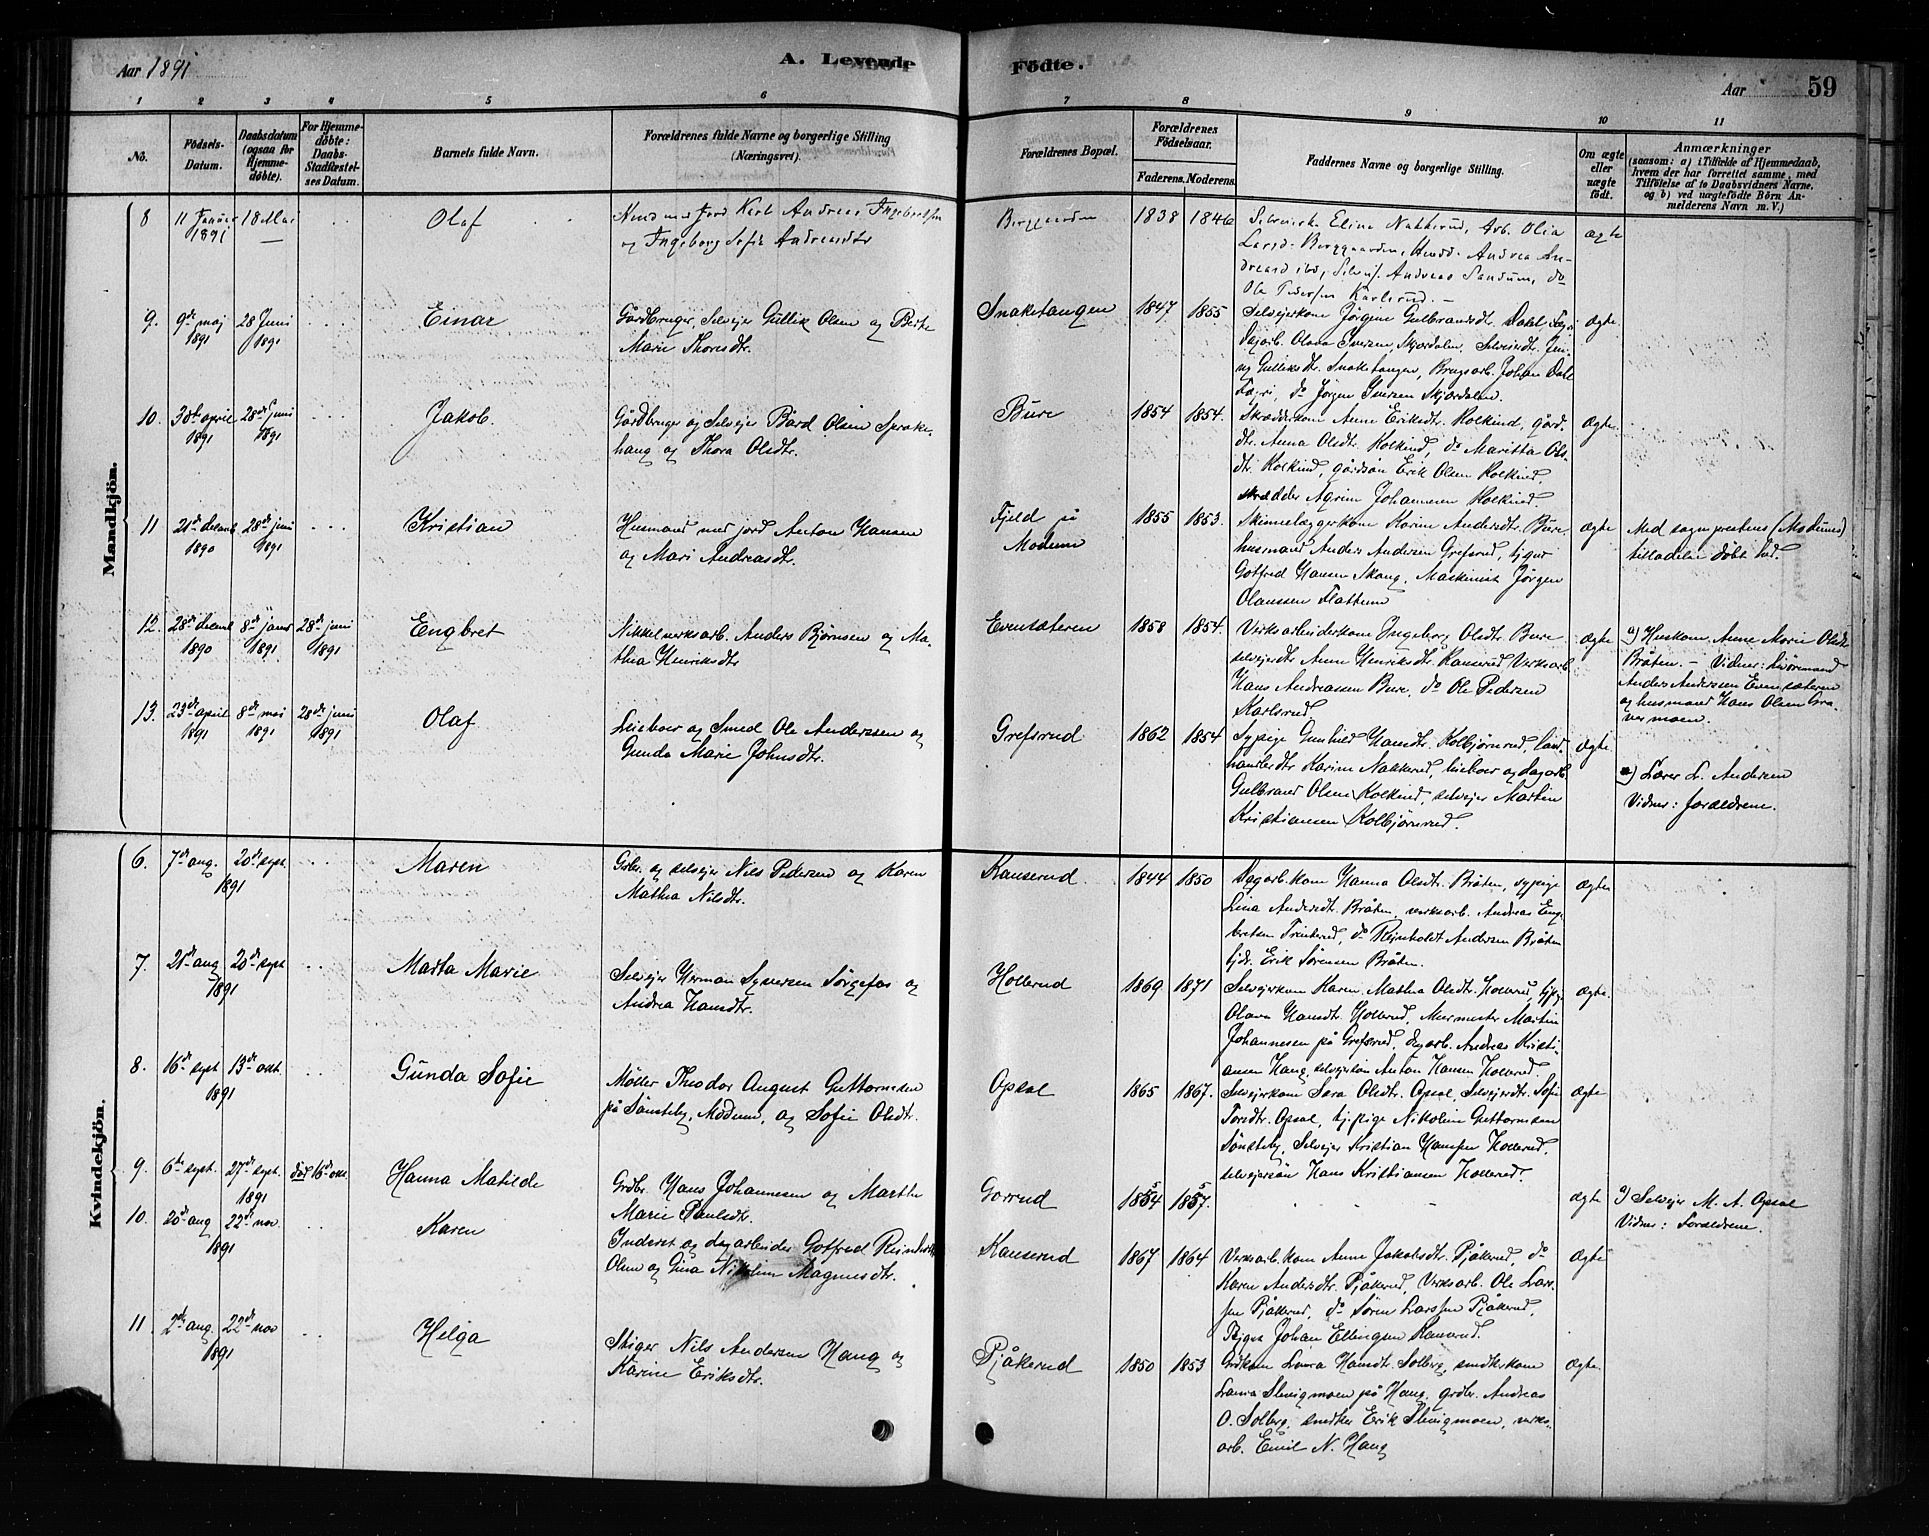 Aar 1891
A. Levende Födte.
Aar
59
1 2 3 4 5 6 7 8 9 10 11
No.
Födsels-Datum.
Daabsdatum (ogsaa for Hjemme-döbte).
For Hjemme-döbte: Daabs-Stadfæstel-ses Datum.
Barnets fulde Navn.
Forældrenes fulde Navne og borgerlige Stilling (Næringsvei).
Forældrenes Bopæl.
Forældrenes Födselsaar.
Faderens. Moderens.
Faddernes Navne og borgerlige Stilling.
Om ægte eller uægte födt.
Anmærkninger
(saasom: a) i Tilfælde af Hjemmedaab,
hvem der har forrettet samme, med
Tilföielse af to Daabsvidners Navne.
og b) ved uægtefödte Börn An-
melderens Navn m. V.)
Mandkjön.
8
11 Januar 1891
18 Mai
Olaf
Husmd med Jord Karl Andreas Ingebretsen
og Ingeborg Sofie Andreasdtr
Berggaarden
1838 1846
Selveierske Eline Nakkerud, Arb. Olia
Larsd. Berggaarden, Husd. Andrea An-
dreasd ibd, Selvei. Andreas Sandum, do
Ole Pedersen Karlsrud. —
ægte
9.
9de maj 1891
28 Juni 1891
Einar
Gårdbruger, Selvejer Gullik Olsen og Berte
Marie Thoresdtr.
Snaketangen
1847 1855
Selvejerkone Jörgine Gulbrandsdtr. Dahl Fagri
Dagarb. Olava Iversen, Skjærdalen, Selveierdtr. Jen-
ny Gulliksdtr. Snaketangen, Brugsarb. Johan Dahl
Fagri, do Jörgen Iversen Skjærdalen.
ægte.
10.
30te april 1891
28de juni 1891
Jakob.
Gårdbruger og Selvejer Bård Olsen Sprake-
haug og Thora Olsdtr.
Bure
1854 1854.
Skrædderkone Anne Eriksdtr. Rolkind, gård.
dtr. Anna Olsdtr. Rolkind, do Maritta Ols-
dtr. Rolkind, gårdsön Erik Olsen Rolkind.
Skrædder Agrim Johannesen Rolkind.
ægte.
11
21de decemb 1890
28de juni 1891
Kristian
Husmand med jord Anton Hansen
og Mari Andreasdtr.
Fjeld på Modum
1855 1853.
Skinnelæggerkone Karine Andersdtr. Bure.
husmand Anders Andersen Grefsrud, tjener
Gotfred Hansen Skaug, Maskinist Jörgen
Olaussen Flattum
ægte
Med sogneprestens (Modums)
tilladelse döbt her.
12.
28de decemb 1890
8de januar 1891
28de juni 1891
Engbret
Nikkelverksarb. Anders Björnsen og Ma-
thea Henriksdtr
Evensæteren
1858 1854.
Verksarbeiderkone Ingeborg Olsdtr. Bure
selvejerdtr. Anne Henriksdtr. Kanserud Verksarb
Hans Andreassen Bure, do Ole Pedersen
Karlsrud.
ægte
a) Huskone Anne Marie Olsdtr.
Bråten. – Vidner:
Anders Anderssen Evensæteren
og husmand Hans Olsen Gra-
vermoen.
13.
23de april 1891
8de mai 1891
28de juni 1891
Olaf
Leieboer og Smed Ole Anderssen og
Gunda Marie Johnsdtr.
Grefsrud
1862 1854
Sypige Gunhild Hansdtr. Kolbjörnrud, land-
handlerdtr Karine Nakkerud, leieboer og dagarb.
Gulbrand Olsen Rolkind, selvejer Martin
Kristiansen Kolbjörnrud.
ægte
a) Lærer L. Andersen
Vidner: forældrene.
Kvindekjön.
6.
7de aug. 1891
20de sept.
Maren
Grdbr. og selvejer Nils Pedersen og Karen
Mathea Nilsdtr.
Kanserud.
1844 1850
Dagarb.kone Hanna Olsdtr. Bråten, sypige
Lina Andersdtr. Bråten, verksarb. Andreas Eng-
bretsen Trinterud, do Reinholdt Andersen Bråten
tjdr. Erik Sörensen Bråten.
ægte
7.
21de aug 1891
20de sept
Marta Marie
Selvejer Herman Syversen Sörgefos og
Andrea Hansdtr.
Hollerud
1869 1871
Selvejerkone Karen Mathea Olsdtr. Hollerud, tjpg.
Olava Hansdtr. Hollerud, Murmester Martin
Johannesen på Grefsrud, dagarb. Andreas Kristi-
ansen Haug, selvejersön Anton Hansen Hollerud.
ægte.
8.
16de sept 1891
13de okt.
Gunda Sofie
Möller Theodor August Guttormsen
på Sönsteby, Modum, og Sofie Olsdtr.
Opsal
1865 1867.
Selvejerkone Sara Olsdtr. Opsal, Selvejerdtr. Sofie
Toredtr. Opsal, tj.pige Nikoline Guttormsen
Sönsteby, Selvejer Kristian Hansen Hollerud,
selvejersön Hans Kristiansen Hollerud.
ægte
9.
6te sept.
27de sept. 1891
död 16de okt.
Hanna Matilde
Grdbr Hans Johannesen og Marthe
Marie Paulsdtr.
Gorrud
1854 1857.
ægte
9) Selvejer M. A. Opsal
Vidner: Forældrene.
10.
20de aug 1891
22de nov.
Karen
Inderst og dagarbeider Gotfred Reinhardt
Olsen og Gina Nikoline Magnusdtr.
Kanserud
1867 1864
Verksarb.kone Anne Jakobsdtr. Pjåkerud, do
Karen Andersdtr. Pjåkerud, Verksarb. Ole Lars-
sen Pjåkerud, do Sören Larssen Pjåkerud,
Johan Ellingsen Kanserud.
ægte
11
2de aug. 1891
22de nov
Helga
Stiger Nils Andersen Haug og
Karine Eriksdtr.
Pjåkerud
1850 1853
Grdkone Laura Hansdtr. Solberg, snedkerkone
Laura Slevigmoen på Haug, grdbr. Andreas
O. Solberg, snedker Erik Slevigmoen, verks-
arb. Emil N. Haug
ægte.